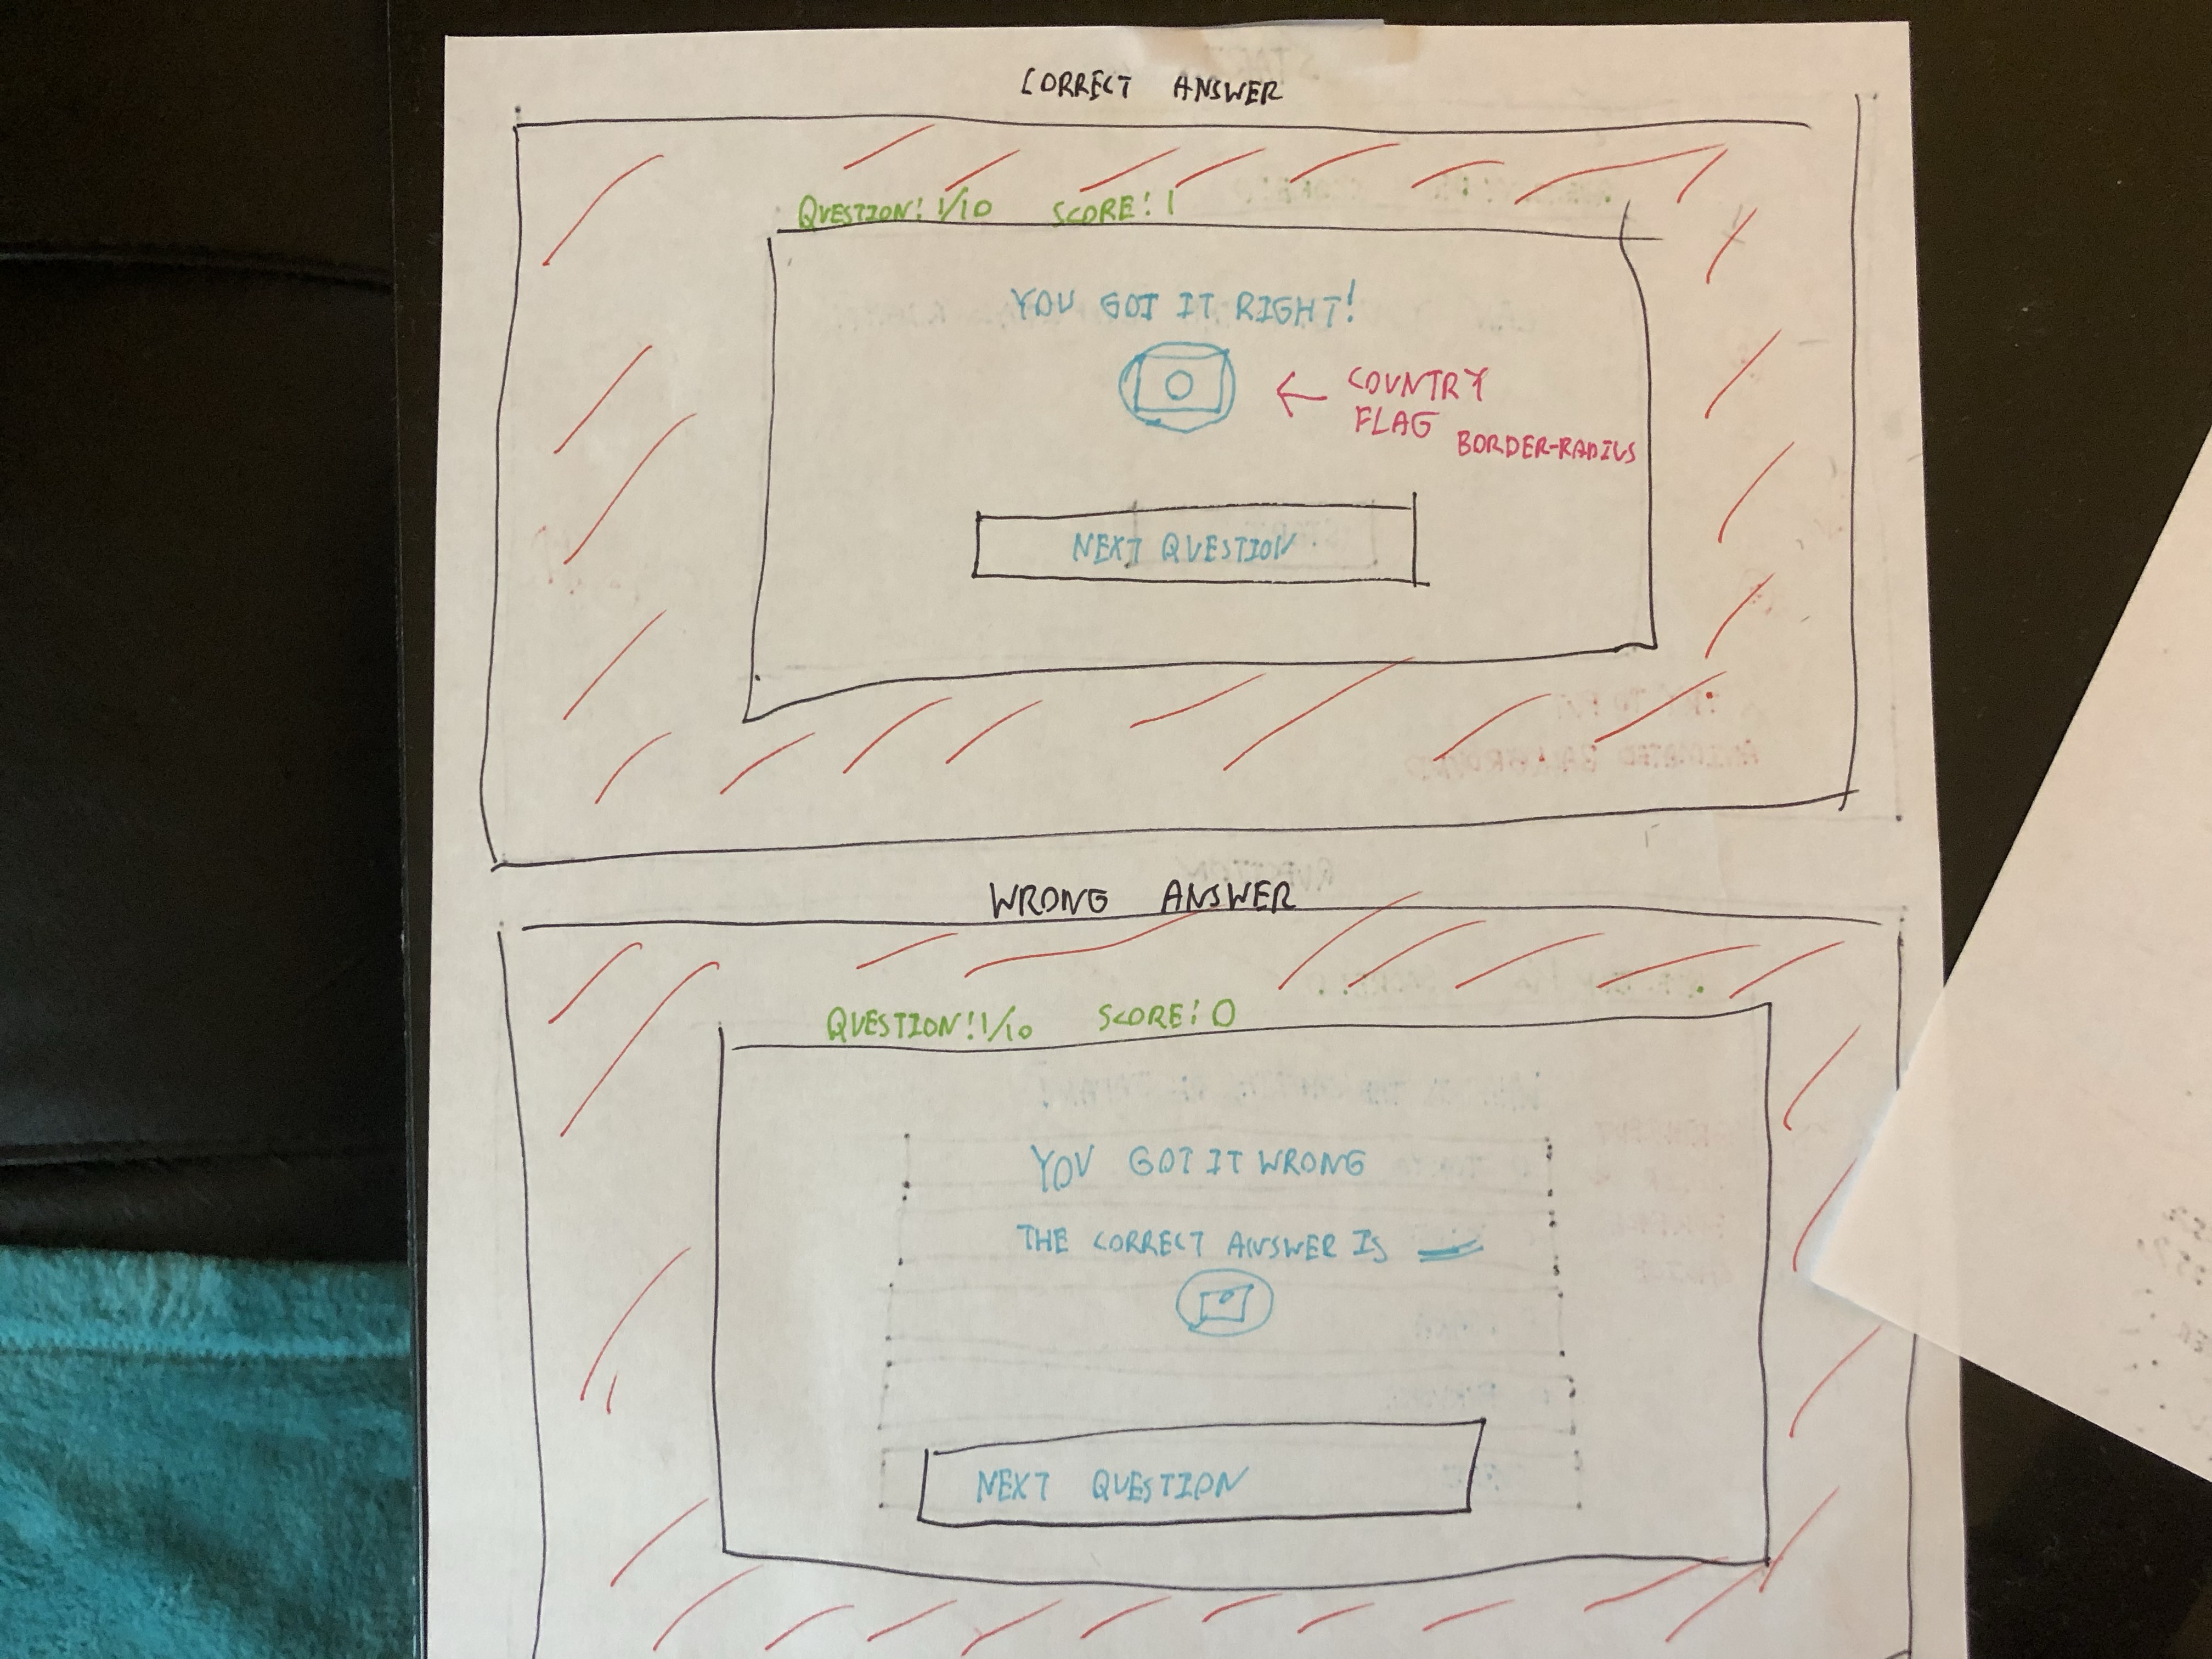 CORRECT ANSWER
QUESTION: 1/10 SCORE: 1
YOU GOT IT RIGHT!
← COUNTRY
FLAG
BORDER-RADIUS
NEXT QUESTION
WRONG ANSWER
QUESTION: 1/10 SCORE: 0
YOU GOT IT WRONG
THE CORRECT ANSWER IS
NEXT QUESTION